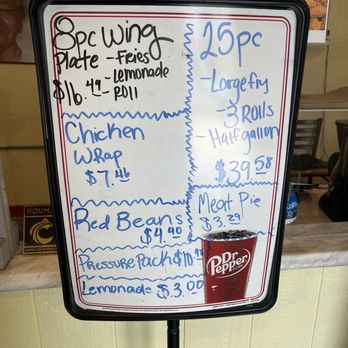 8pc Wing
Plate - Feies
- Lemonade
Roll
$16.49
Chicken
WRap
$7.46
Red Beans
$4.40
Pressure Pack $10
Lemonade $3.00
25pc
- Large fry
- 3 Rolls
- Half gallon
$39.58
Meat Pie
$3.29
Dr
Pepper
HOUMA